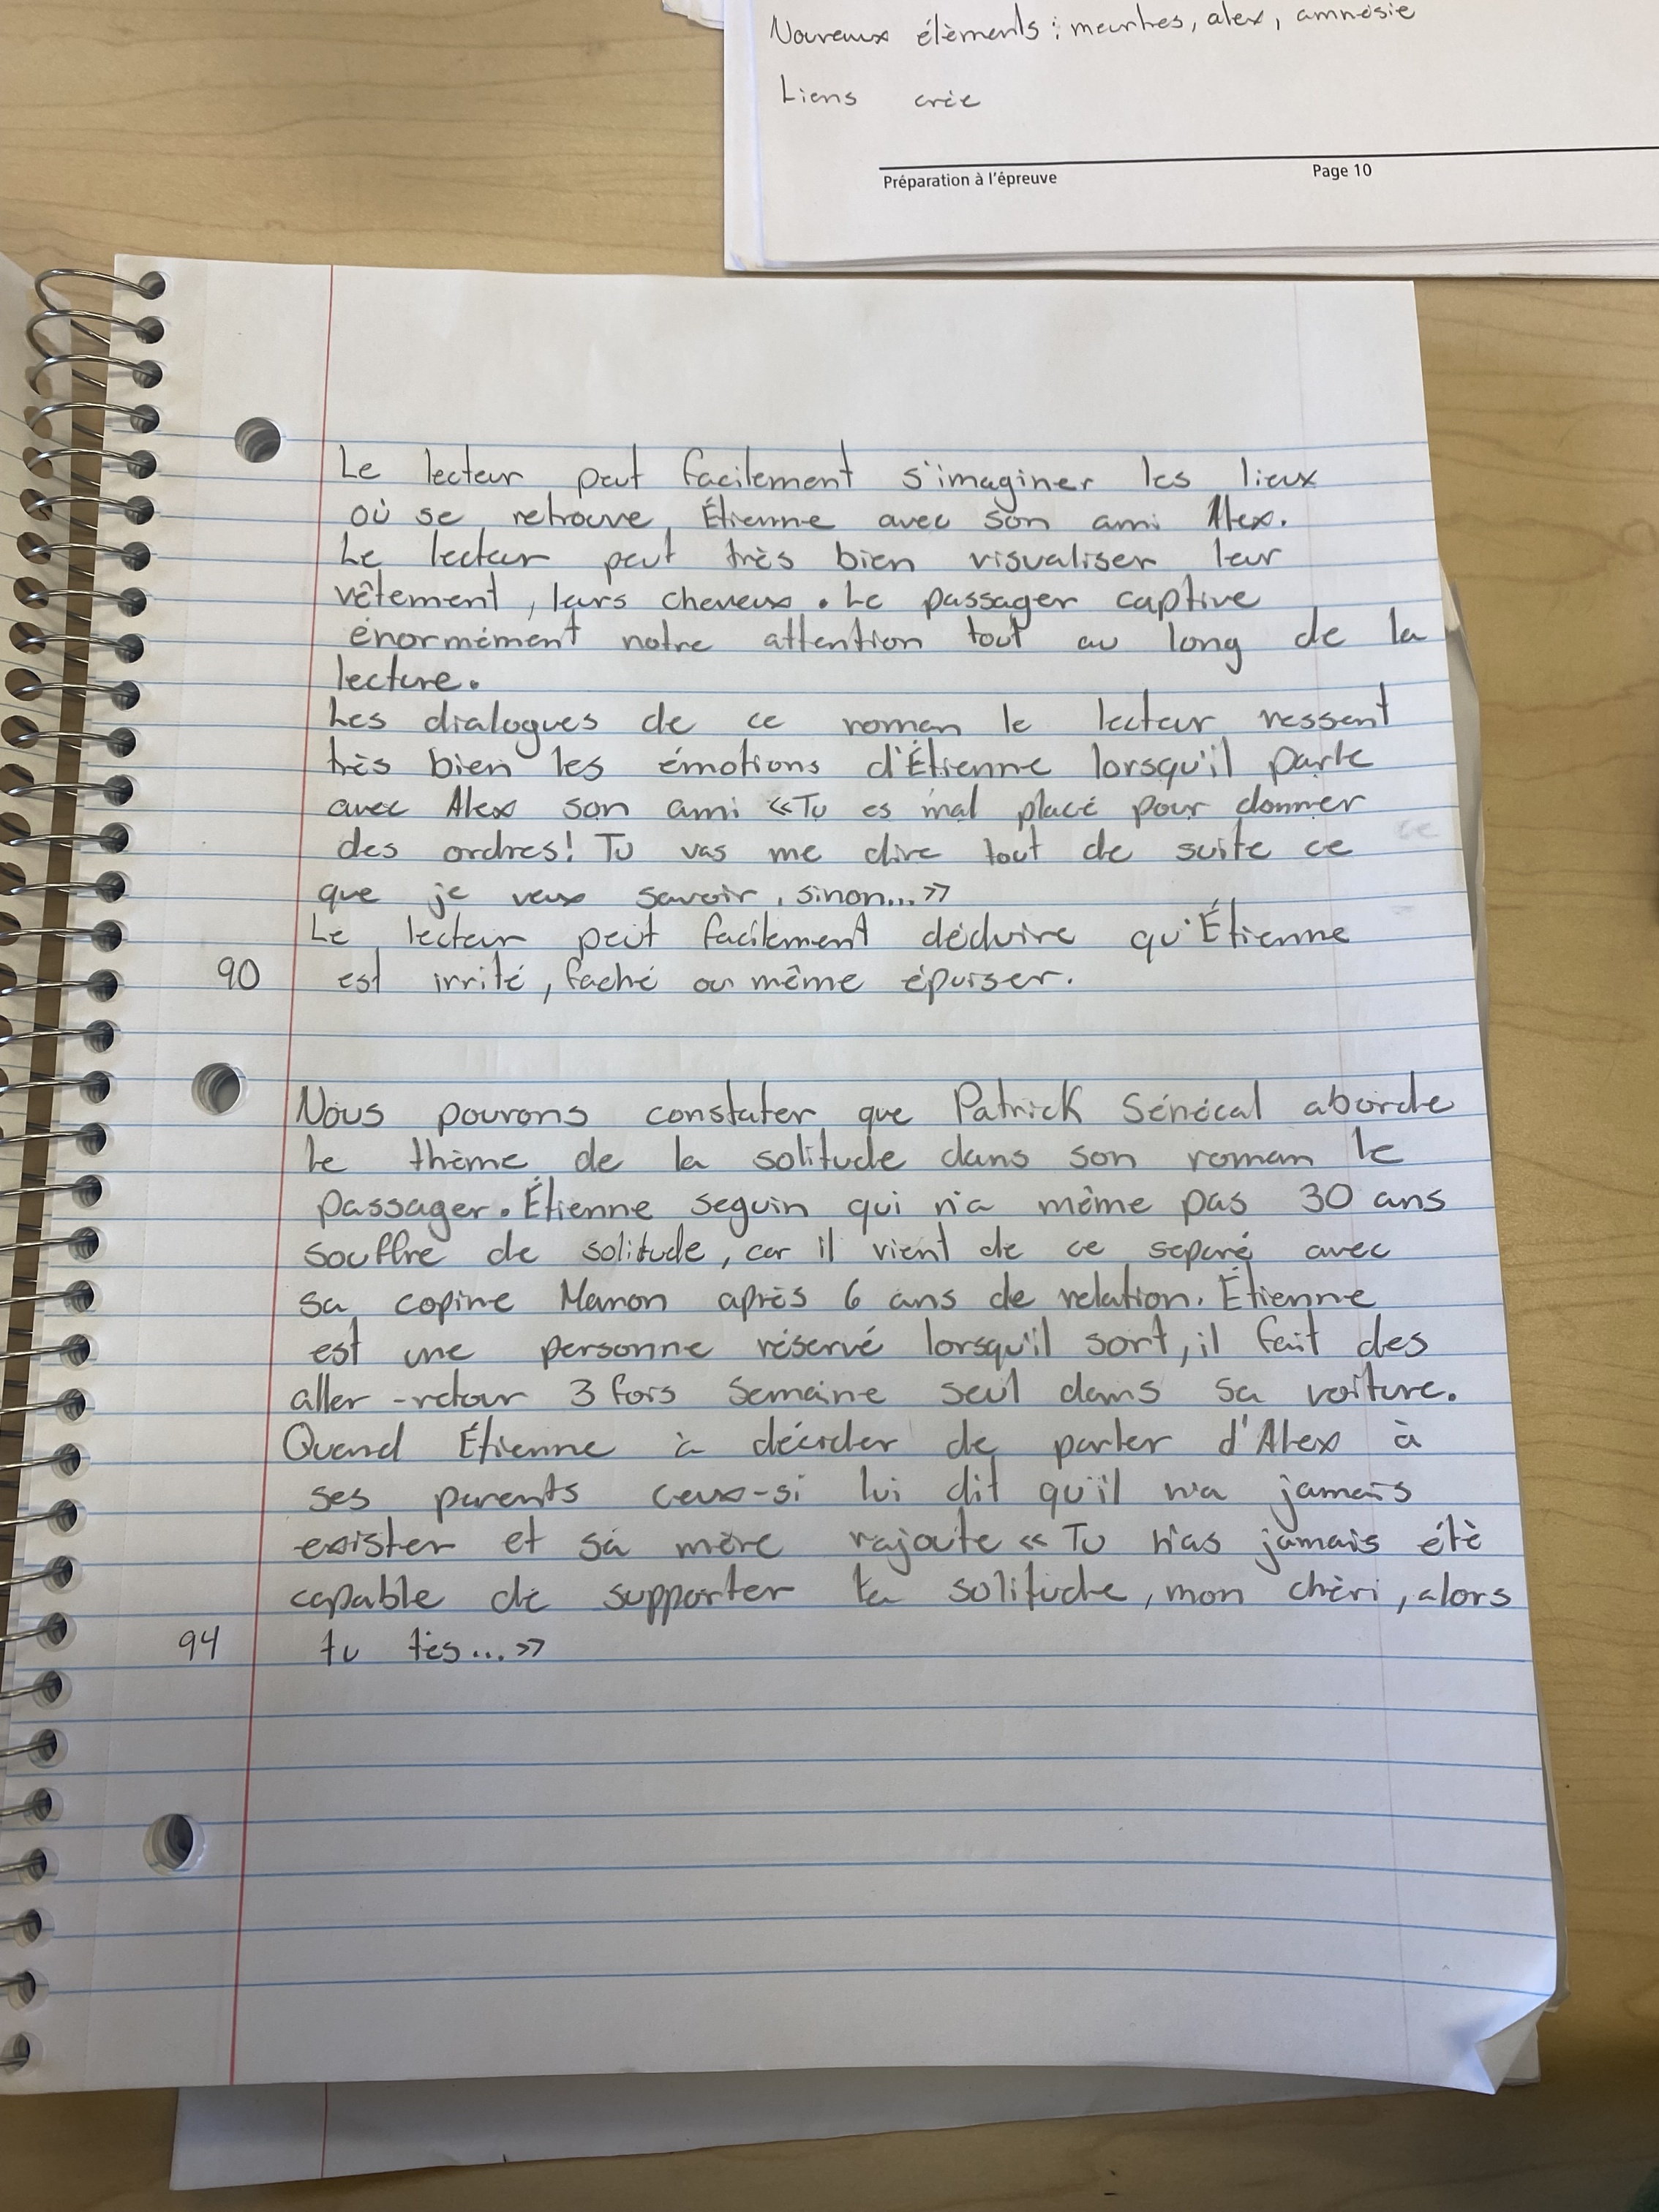 Nouveaux éléments : meurtres, alex, amnésie
Liens crée
Préparation à l'épreuve Page 10
Le lecteur peut facilement s'imaginer les lieux
où se retrouve Étienne avec son ami Alex.
Le lecteur peut très bien visualiser leur
vêtement, leurs cheveux. Le passager captive
énormément notre attention tout au long de la
lecture.
Les dialogues de ce roman le lecteur ressent
très bien les émotions d'Étienne lorsqu'il parle
avec Alex son ami «Tu es mal placé pour donner
des ordres! Tu vas me dire tout de suite ce
que je veux savoir, sinon...»
Le lecteur peut facilement déduire qu'Étienne
90 est irrité, faché ou même épuiser.
Nous pouvons constater que Patrick Sénécal aborde
le thème de la solitude dans son roman le
passager. Étienne seguin qui n'a même pas 30 ans
souffre de solitude, car il vient de ce séparé avec
sa copine Manon après 6 ans de relation. Étienne
est une personne réservé lorsqu'il sort, il fait des
aller-retour 3 fois semaine seul dans sa voiture.
Quand Étienne à décider de parler d'Alex à
ses parents ceux-si lui dit qu'il n'a jamais
exister et sa mère rajoute «Tu n'as jamais été
capable de supporter ta solitude, mon chéri, alors
94 tu t'es...»